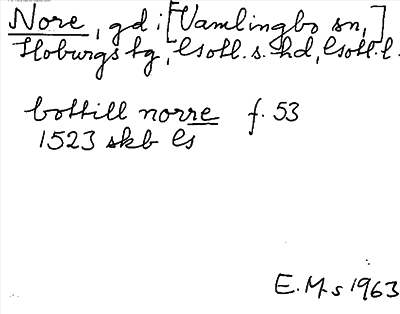 Nore, gd i [Vamlingbo sn,]
Hoburgs tg, Gotl. s. hd, Gotl. l.
bottill norre f. 53
1523 skb Gs
E.M-s 1963